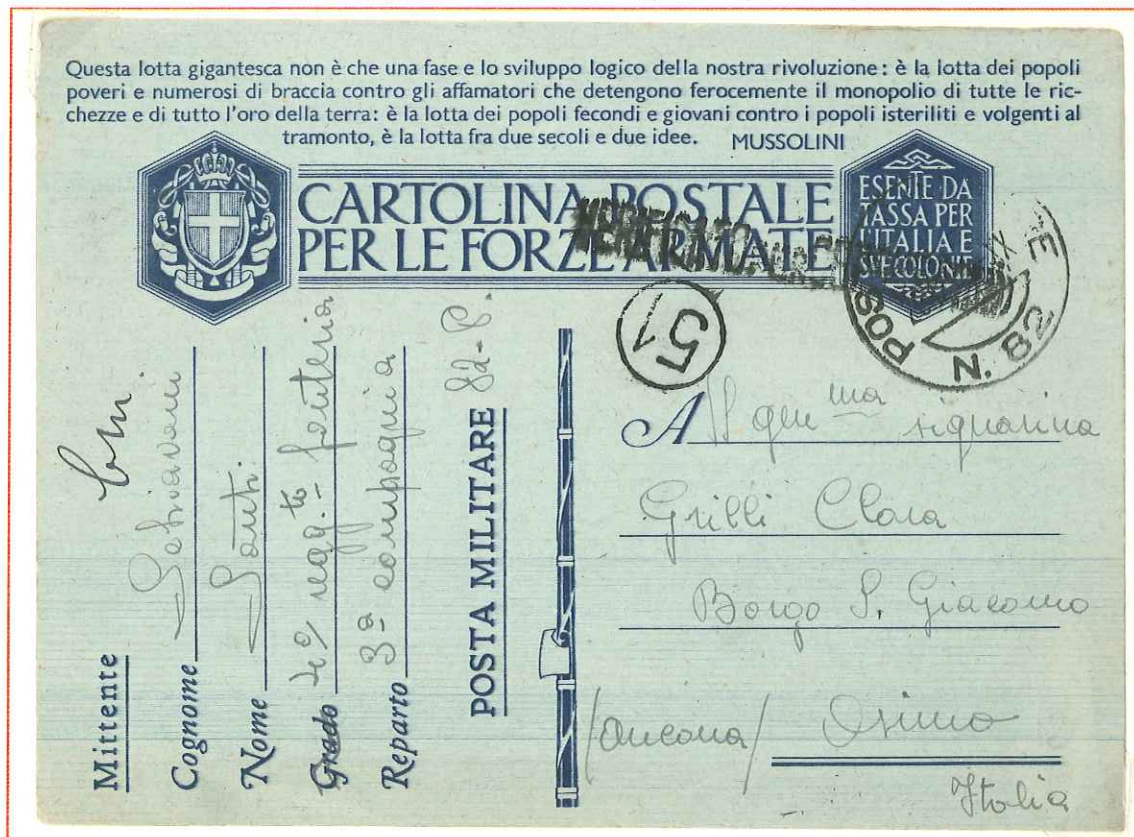 Questa lotta gigantesca non è che una fase e lo sviluppo logico della nostra rivoluzione: è la lotta dei popoli
poveri e numerosi di braccia contro gli affamatori che detengono ferocemente il monopolio di tutte le ric-
chezze e di tutto l'oro della terra: è la lotta dei popoli fecondi e giovani contro i popoli isteriliti e volgenti al
tramonto, è la lotta fra due secoli e due idee. MUSSOLINI
CARTOLINA POSTALE
PER LE FORZE ARMATE
ESENTE DA
TASSA PER
L'ITALIA E
SUE COLONIE
POS
N. 82
5
Mittente
Cognome
Nome Santi
Grado 4° regg.to fanteria
Reparto 3ª compagnia
POSTA MILITARE 82-P.
A signorina
Grilli Clara
Borgo S. Giacomo
/Ancona/ Osimo
Italia